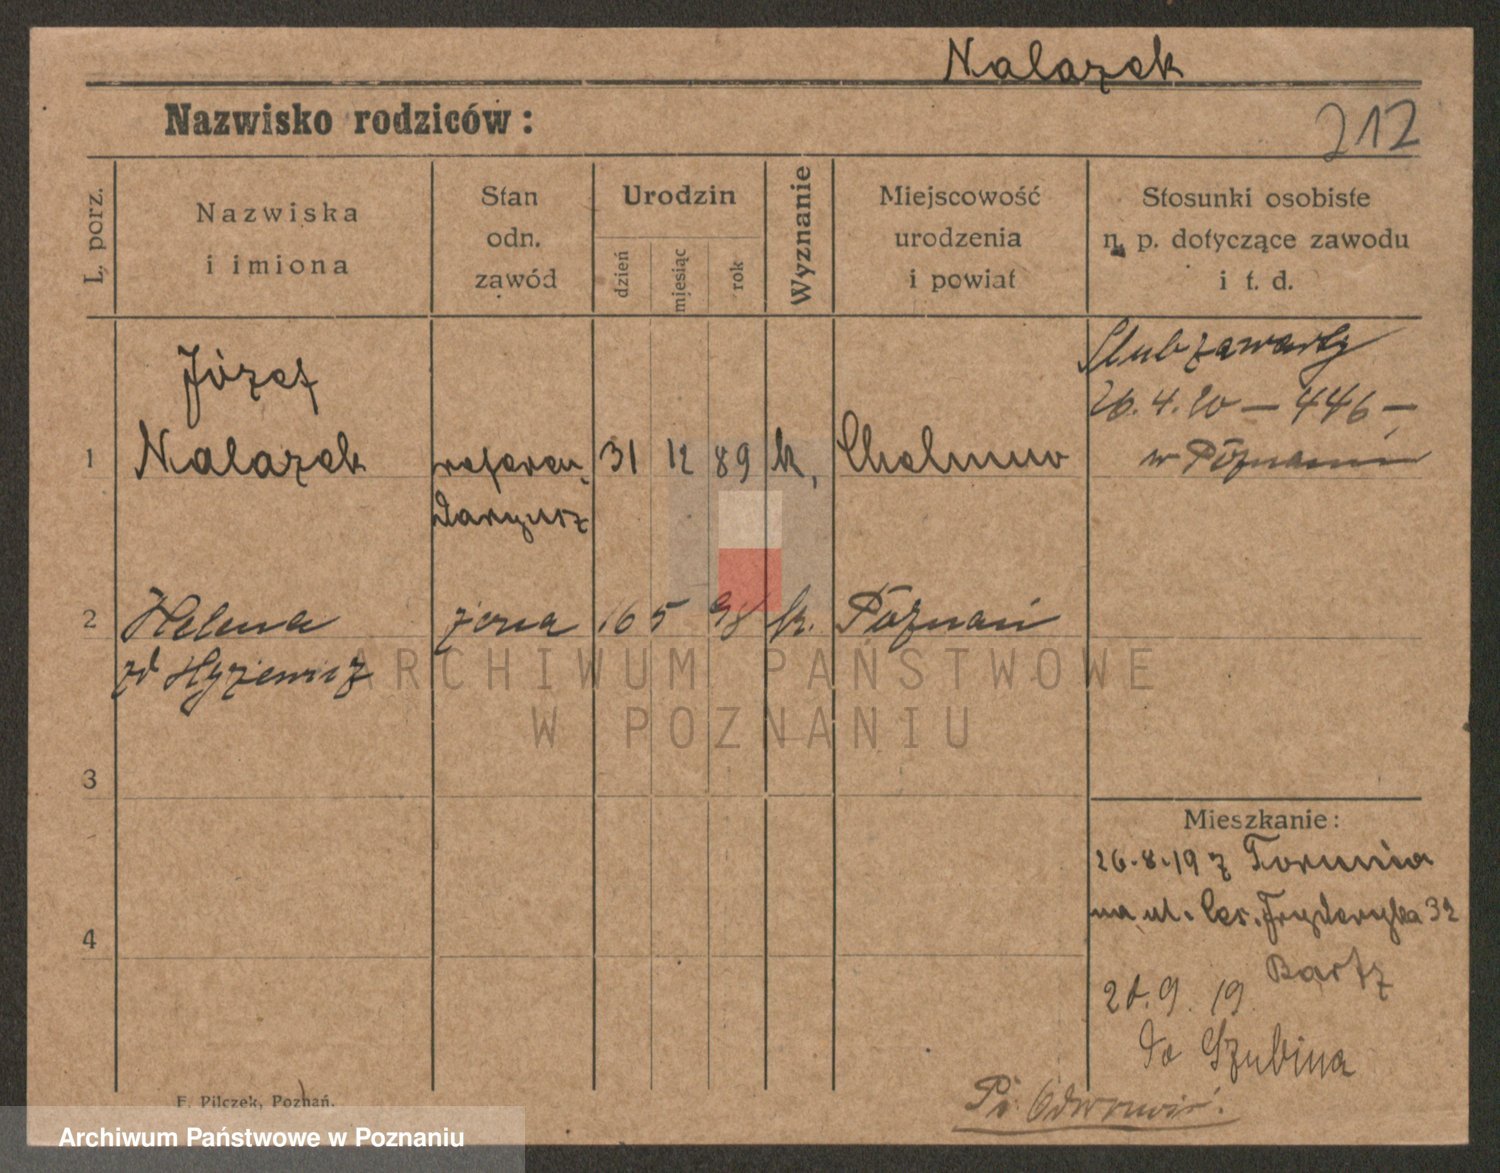 Nalazek
Nazwisko rodziców:
212
L. porz.
Nazwiska
i imiona
Stan
odn.
zawód
Urodzin
dzień
miesiąc
rok
Wyznanie
Miejscowość
urodzenia
i powiat
Stosunki osobiste
n. p. dotyczące zawodu
i t. d.
Ślub zawarty
26.4.20 — 446 —
w Poznaniu
1
Józef
Nalazek
referen
darjusz
31 12 89 k,
Chełmno
2
Helena
zd Hyżewicz
żona
16 5 98 k.
Poznań
ARCHIWUM PAŃSTWOWE
W POZNANIU
3
4
Mieszkanie:
26.8.19 z Torunia
na ul. Ces. Fryderyka 32
Bartz
9. 19
do Szubina
F. Pilczek, Poznań.
Archiwum Państwowe w Poznaniu